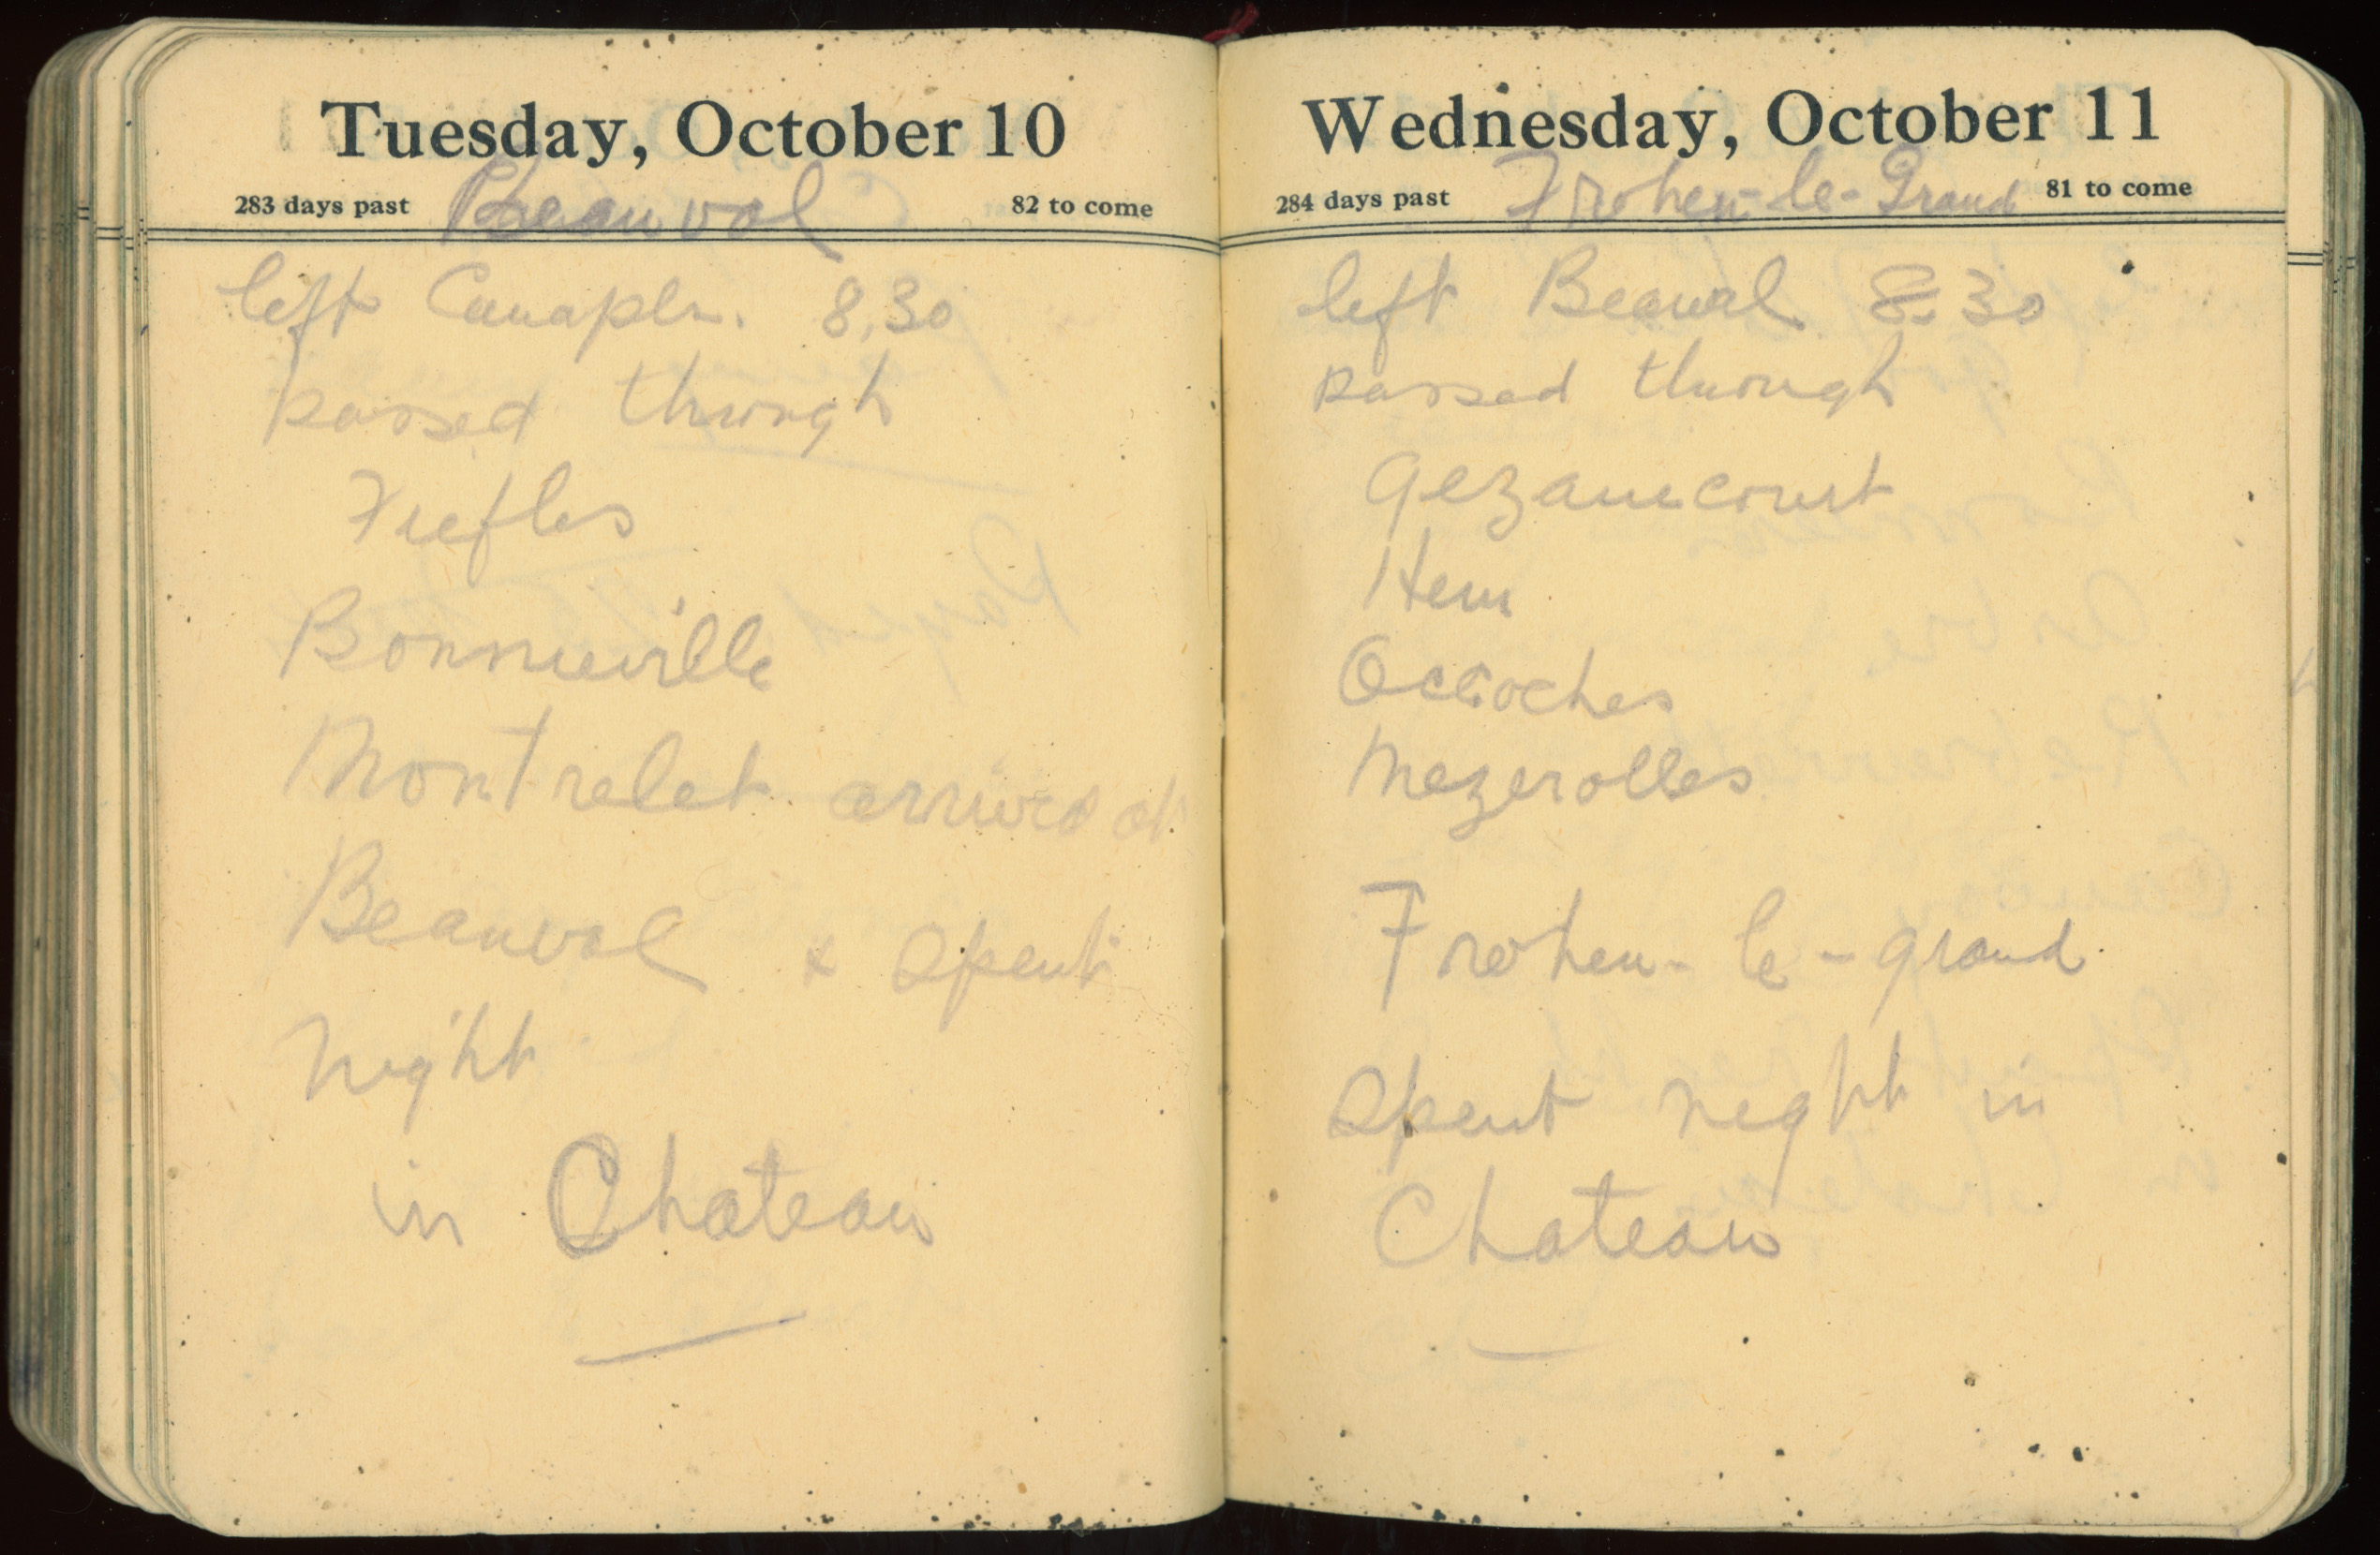 Tuesday, October 10
283 days past Beauval 82 to come
left Canaples. 8.30
passed through
Fiefles
Bonneville
Montrelet arrived at
Beauval & spent
night
in Chateau
Wednesday, October 11
284 days past Frohen-le-Grand 81 to come
left Beauval 8.30
passed through
Gezaincourt
Hem
Occoches
Mezerolles
Frohen-le-grand
spent night in
Chateau